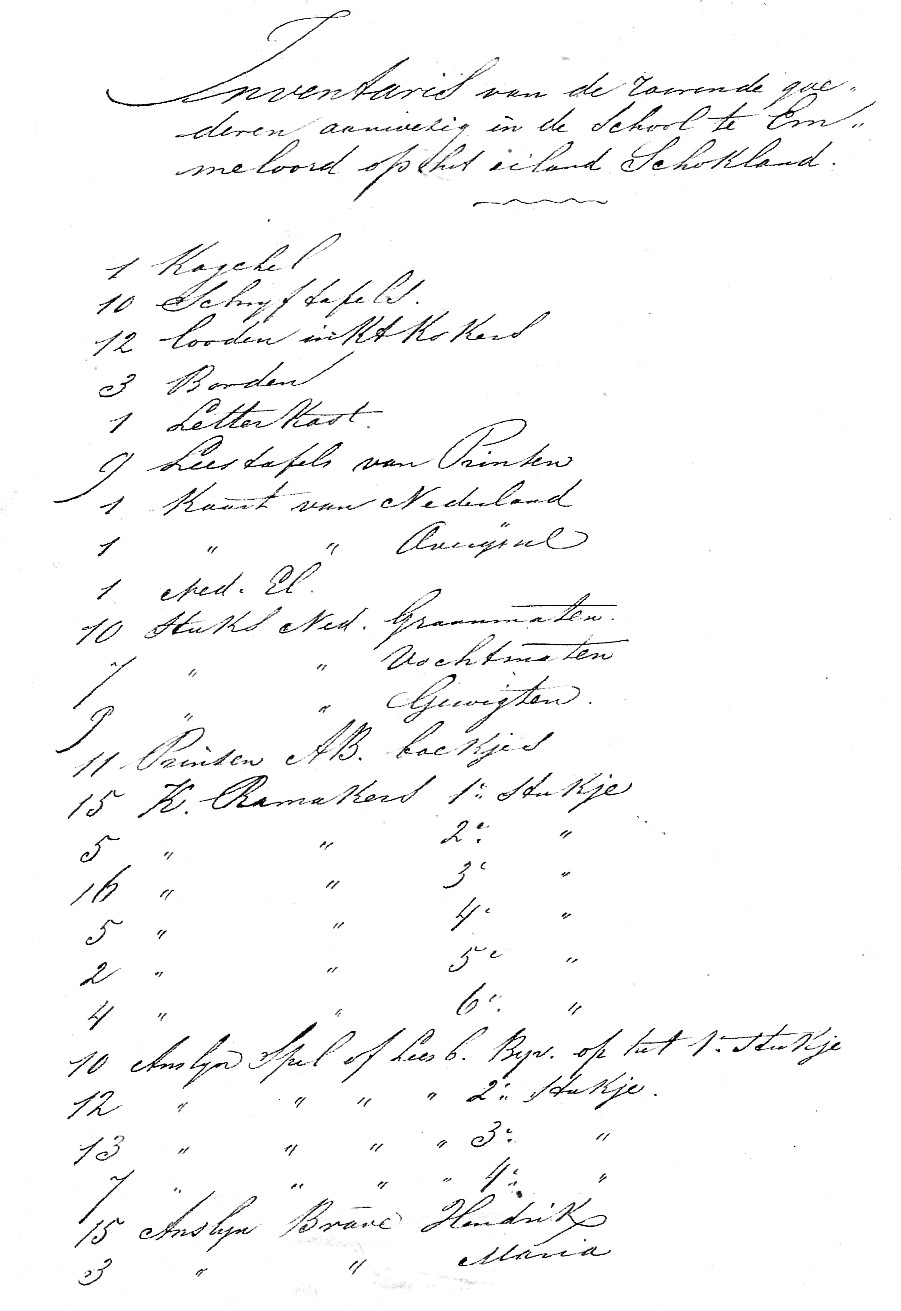 Inventaris van de roerende goe-
deren aanwezig in de School te Em-
meloord op het eiland Schokland.
1 Kagchel
10 Schryftafels.
12 looden inktkokers
3 Borden
1 Letterkast.
9 Leestafels van Prinsen
1 Kaart van Nederland
1 " " Overijssel
1 Ned. El.
10 Stuks Ned. Graanmaten.
7 " " Vochtmaten
9 " " Gewigten.
11 Prinsen AB. boekjes
15 K. Ramakers 1e. Stukje
5 " " 2e. "
16 " " 3e "
5 " " 4e "
2 " " 5e "
4 " " 6e. "
10 Anslyn Spel of Leesb. Byv. op het 1e. Stukje
12 " " " " 2e. Stukje.
13 " " " " 3e. "
7 " " " " 4e. "
15 Anslyn Brave Hendrik
3 " " Maria